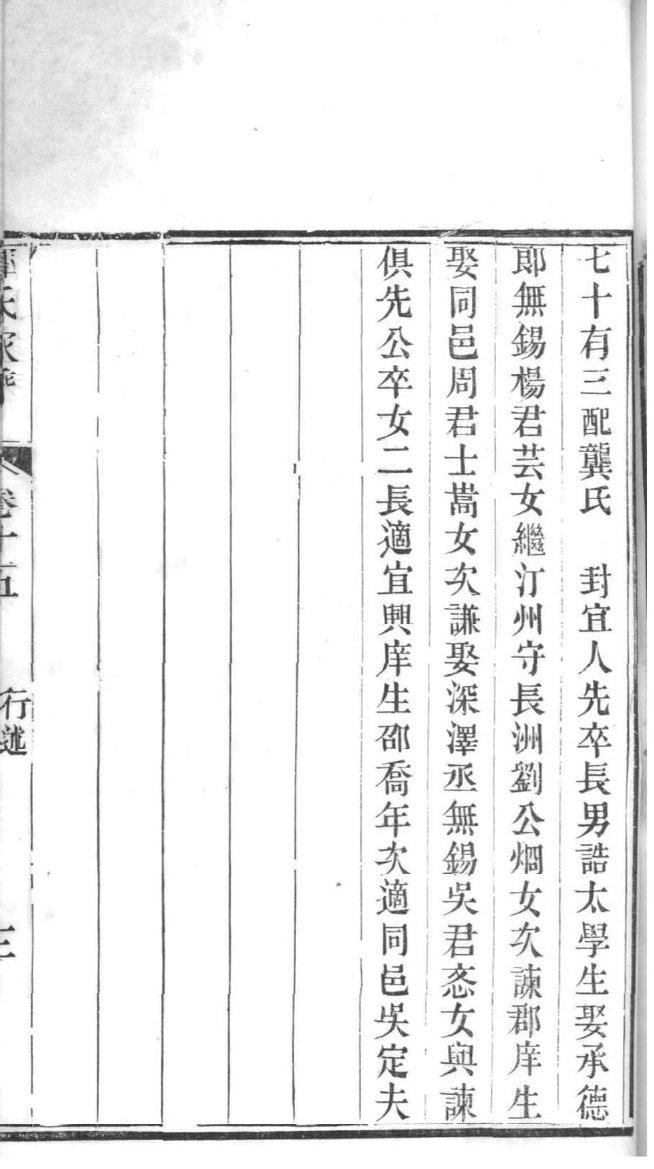 七十有三配龔氏　封宜人先卒長男誥太學生娶承德
郎無錫楊君芸女繼汀州守長洲劉公烱女次諫郡庠生
娶同邑周君士蒿女次謙娶深澤丞無錫吳君忞女與諫
俱先公卒女二長適宜興庠生邵喬年次適同邑吳定夫
氏家乘
卷十五
行述
三